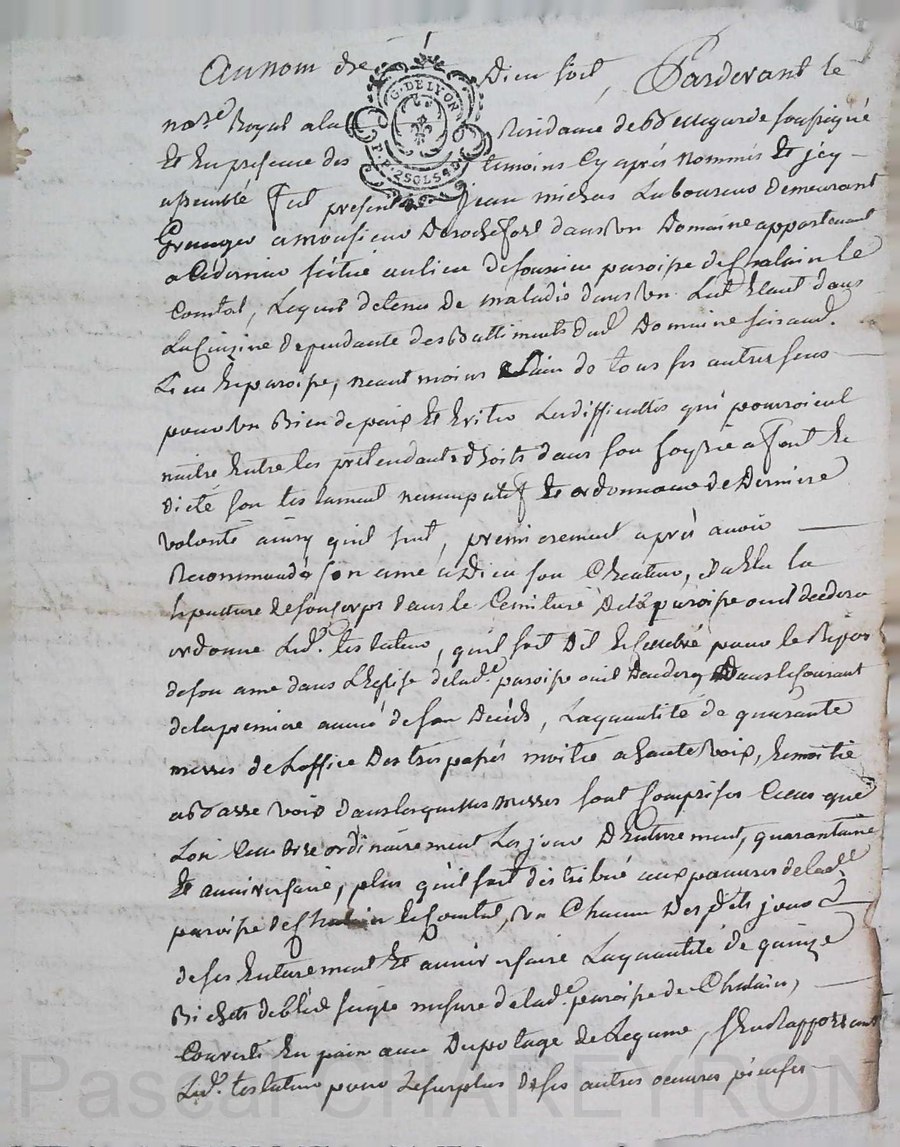 Au nom de Dieu soit, Pardevant le
no.re Royal a la Residance de Bellegarde soussigné
Et En presence des temoins Cy après nommés Et icy
assemblé fut present Jean michas Laboureur demeurant
Granger a monsieur De rochefort dans un Domaine appartenant
a Cedernier scitué au lieu de paroisse de Chalain le
Comtal, Lequel detenu de maladie dans un Lict Etant dans
La Cuizine dependante des Battiments dud. Domaine susd.
Lieu Et paroisse, neantmoins Sain de tous ses autres sens
pour un Bien de paix Et Eviter Les difficultes qui pourroient
naitre Entre les prétendants droits dans son hoyrie a fait Et
dicté son testament nuncupatif Et ordonnance de Derniere
volonté ainsy quil suit, premierement après avoir
Recommandé son ame a Dieu son Createur, a Elu la
sepulture de son corps dans le Cemitiere De la paroisse ou il decedera
ordonne Led. testateur, quil soit Dit Et celebré pour le Repos
de son ame dans L'Eglise de lad.e paroisse ou il Decedera, Dans le courant
de la premiere année de son Decés, La quantité de quarante
messes de L'office Des trespassés moitié a haute voix, Et moitié
a basse voix dans lesquelles messes sont comprises Celles que
Lon Celebre ordinairement Les jour D'Enterrement, quarantaine
Et anniversaire, plus quil soit distribué aux pauvres de lad.e
paroisse de Chalain Le Comtal, un Chacun Des dits jours
de ses Enterrement Et anniversaire La quantité de quinze
Bichets de bled seigle mesure de lad.e paroisse de Chalain,
Convertis En pain avec Du potage de Legume, s'En Rapportant
Led. testateur pour Le surplus de ses autres oeuvres pieuses
G. DE LYON
2 SOLS 4 D
Pascal CHAREYRON